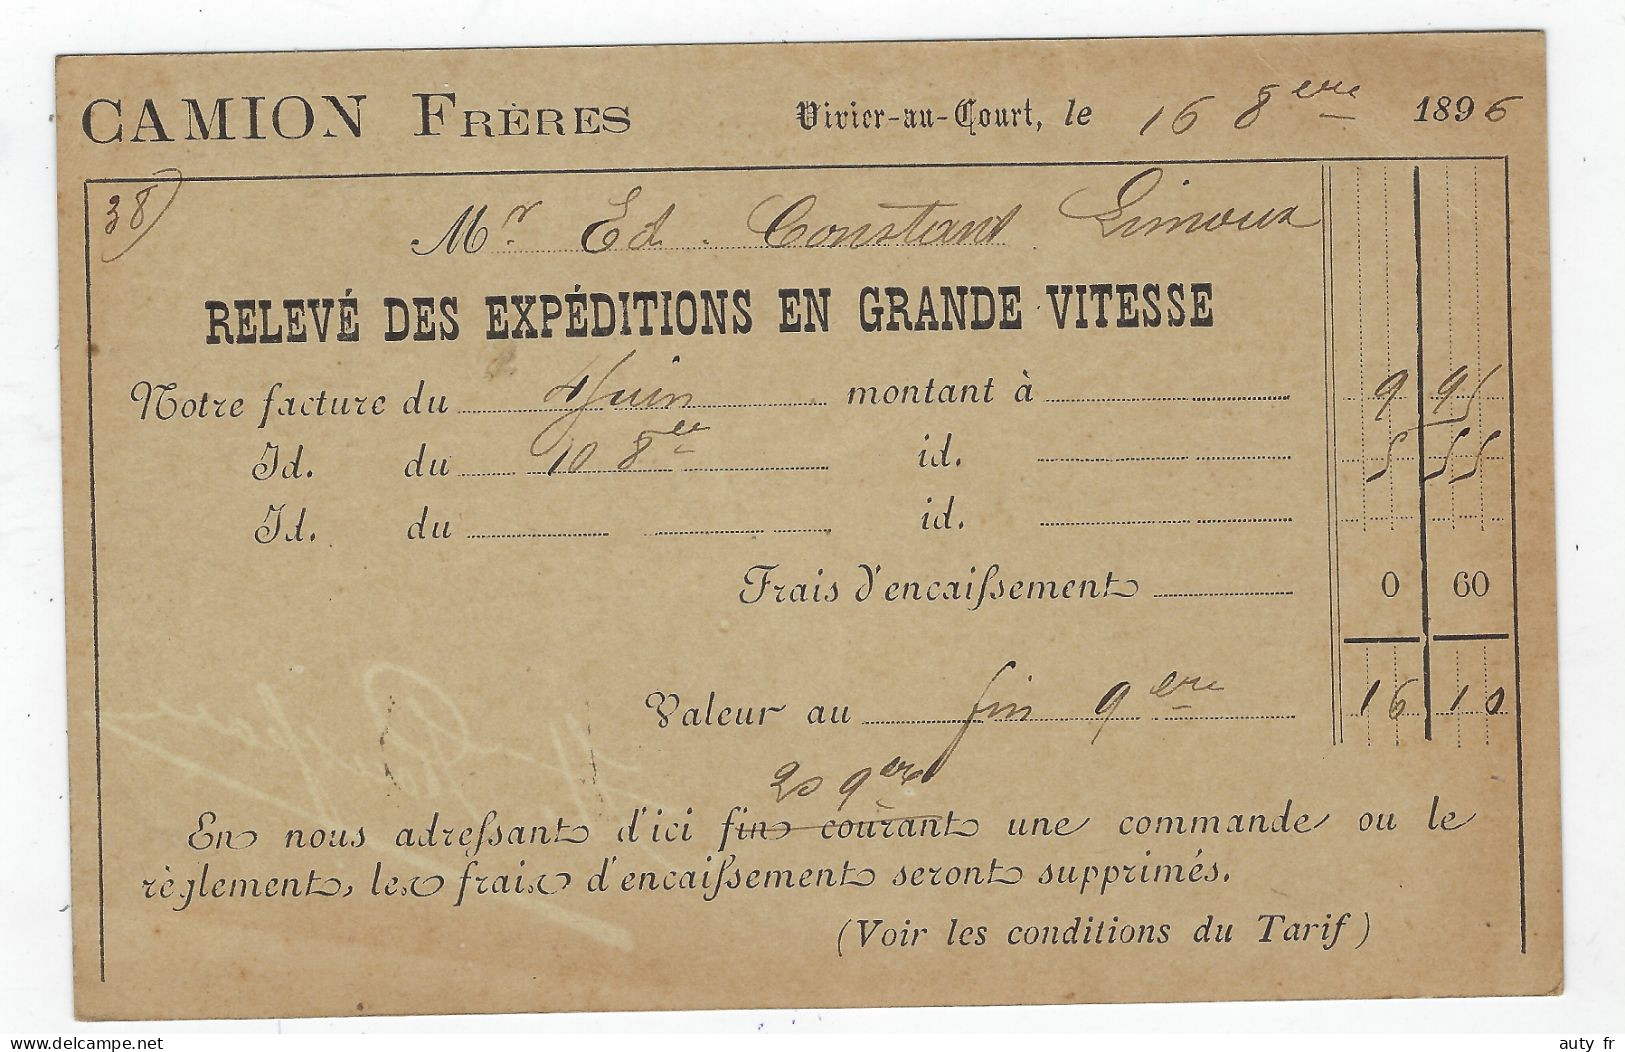 CAMION FRÈRES Vivier-au-Court, le 16 8ere 1896
38)
Mr. Ed. Constant Limoux
RELEVÉ DES EXPÉDITIONS EN GRANDE VITESSE
Notre facture du 4 Juin montant à 9 95
Id. du 10 8re id. 5 55
Id. du id.
Frais d'encaissement 0 60
Valeur au fin 9ere 16 10
20 9ere
En nous adressant d'ici fin courant une commande ou le
règlement, les frais d'encaissement seront supprimés.
(Voir les conditions du Tarif)
delcampe.net
auty fr